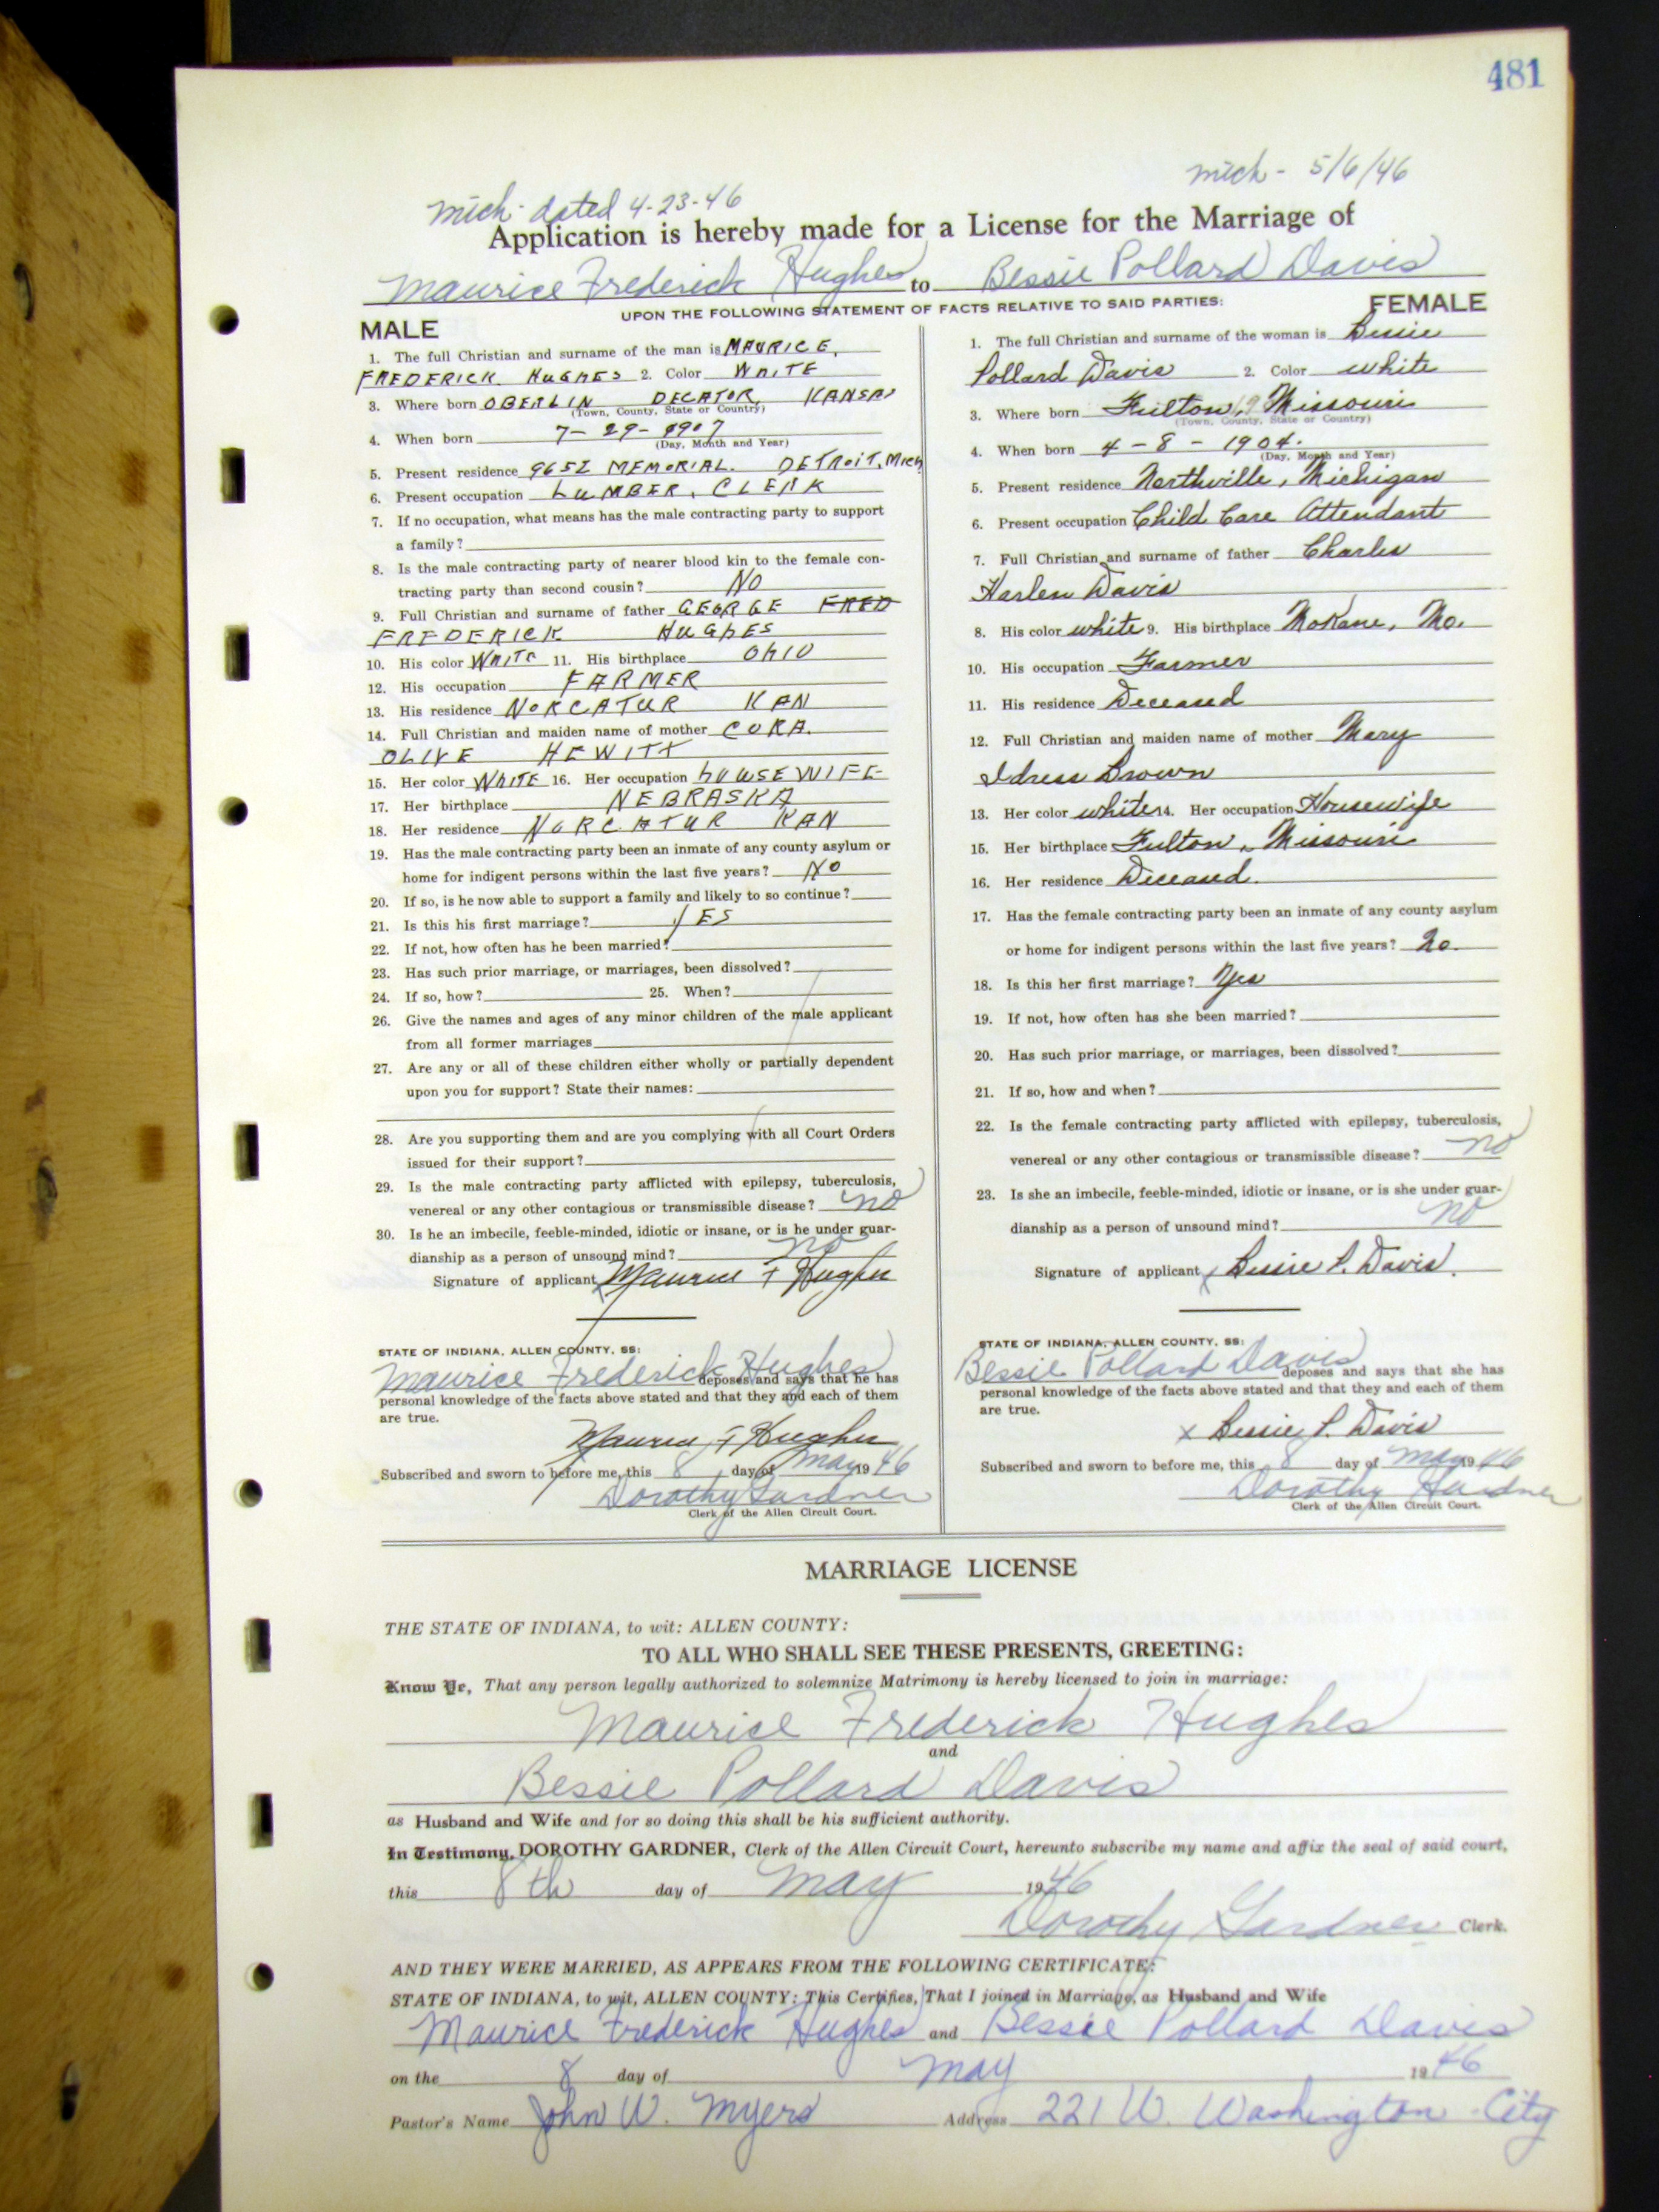 481
mich - 5/6/46
mich - dated 4-23-46
Application is hereby made for a License for the Marriage of
Maurice Frederick Hughes to Bessie Pollard Davis
UPON THE FOLLOWING STATEMENT OF FACTS RELATIVE TO SAID PARTIES:
MALE
1. The full Christian and surname of the man is MAURICE
FREDERICK HUGHES 2. Color WHITE
3. Where born OBERLIN DECATOR KANSAS
(Town, County, State or Country)
4. When born 7-29-1907
(Day, Month and Year)
5. Present residence 9652 MEMORIAL. DETROIT, Mich
6. Present occupation LUMBER, CLERK
7. If no occupation, what means has the male contracting party to support
a family?
8. Is the male contracting party of nearer blood kin to the female con-
tracting party than second cousin? NO
9. Full Christian and surname of father GEORGE FRED
FREDERICK HUGHES
10. His color WHITE 11. His birthplace OHIO
12. His occupation FARMER
13. His residence NORCATUR KAN
14. Full Christian and maiden name of mother CORA.
OLIVE HEWITT
15. Her color WHITE 16. Her occupation HOUSEWIFE
17. Her birthplace NEBRASKA
18. Her residence NORCATUR KAN
19. Has the male contracting party been an inmate of any county asylum or
home for indigent persons within the last five years? NO
20. If so, is he now able to support a family and likely to so continue?
21. Is this his first marriage? YES
22. If not, how often has he been married?
23. Has such prior marriage, or marriages, been dissolved?
24. If so, how? 25. When?
26. Give the names and ages of any minor children of the male applicant
from all former marriages
27. Are any or all of these children either wholly or partially dependent
upon you for support? State their names:
28. Are you supporting them and are you complying with all Court Orders
issued for their support?
29. Is the male contracting party afflicted with epilepsy, tuberculosis,
venereal or any other contagious or transmissible disease? no
30. Is he an imbecile, feeble-minded, idiotic or insane, or is he under guar-
dianship as a person of unsound mind? no
Signature of applicant x Maurice F Hughes
STATE OF INDIANA, ALLEN COUNTY, SS:
Maurice Frederick Hughes deposes and says that he has
personal knowledge of the facts above stated and that they and each of them
are true.
Maurice F Hughes
Subscribed and sworn to before me, this 8 day of May 1946
Dorothy Gardner
Clerk of the Allen Circuit Court.
FEMALE
1. The full Christian and surname of the woman is Bessie
Pollard Davis 2. Color white
3. Where born Fulton, Missouri
(Town, County, State or Country)
4. When born 4-8-1904.
(Day, Month and Year)
5. Present residence Northville, Michigan
6. Present occupation Child Care Attendant
7. Full Christian and surname of father Charles
Harlen Davis
8. His color white 9. His birthplace Mokane, Mo.
10. His occupation Farmer
11. His residence Deceased
12. Full Christian and maiden name of mother Mary
Idress Brown
13. Her color white 14. Her occupation Housewife
15. Her birthplace Fulton, Missouri
16. Her residence Deceased.
17. Has the female contracting party been an inmate of any county asylum
or home for indigent persons within the last five years? No.
18. Is this her first marriage? Yes
19. If not, how often has she been married?
20. Has such prior marriage, or marriages, been dissolved?
21. If so, how and when?
22. Is the female contracting party afflicted with epilepsy, tuberculosis,
venereal or any other contagious or transmissible disease? no
23. Is she an imbecile, feeble-minded, idiotic or insane, or is she under guar-
dianship as a person of unsound mind? no
Signature of applicant x Bessie P. Davis.
STATE OF INDIANA, ALLEN COUNTY, SS:
Bessie Pollard Davis deposes and says that she has
personal knowledge of the facts above stated and that they and each of them
are true.
x Bessie P. Davis
Subscribed and sworn to before me, this 8 day of May 1946
Dorothy Gardner
Clerk of the Allen Circuit Court.
MARRIAGE LICENSE
THE STATE OF INDIANA, to wit: ALLEN COUNTY:
TO ALL WHO SHALL SEE THESE PRESENTS, GREETING:
Know Ye, That any person legally authorized to solemnize Matrimony is hereby licensed to join in marriage:
Maurice Frederick Hughes
and
Bessie Pollard Davis
as Husband and Wife and for so doing this shall be his sufficient authority.
In Testimony, DOROTHY GARDNER, Clerk of the Allen Circuit Court, hereunto subscribe my name and affix the seal of said court,
this 8th day of May 1946
Dorothy Gardner Clerk.
AND THEY WERE MARRIED, AS APPEARS FROM THE FOLLOWING CERTIFICATE:
STATE OF INDIANA, to wit, ALLEN COUNTY: This Certifies, That I joined in Marriage, as Husband and Wife
Maurice Frederick Hughes and Bessie Pollard Davis
on the 8 day of May 1946
Pastor's Name John W. Myers Address 221 W. Washington - City